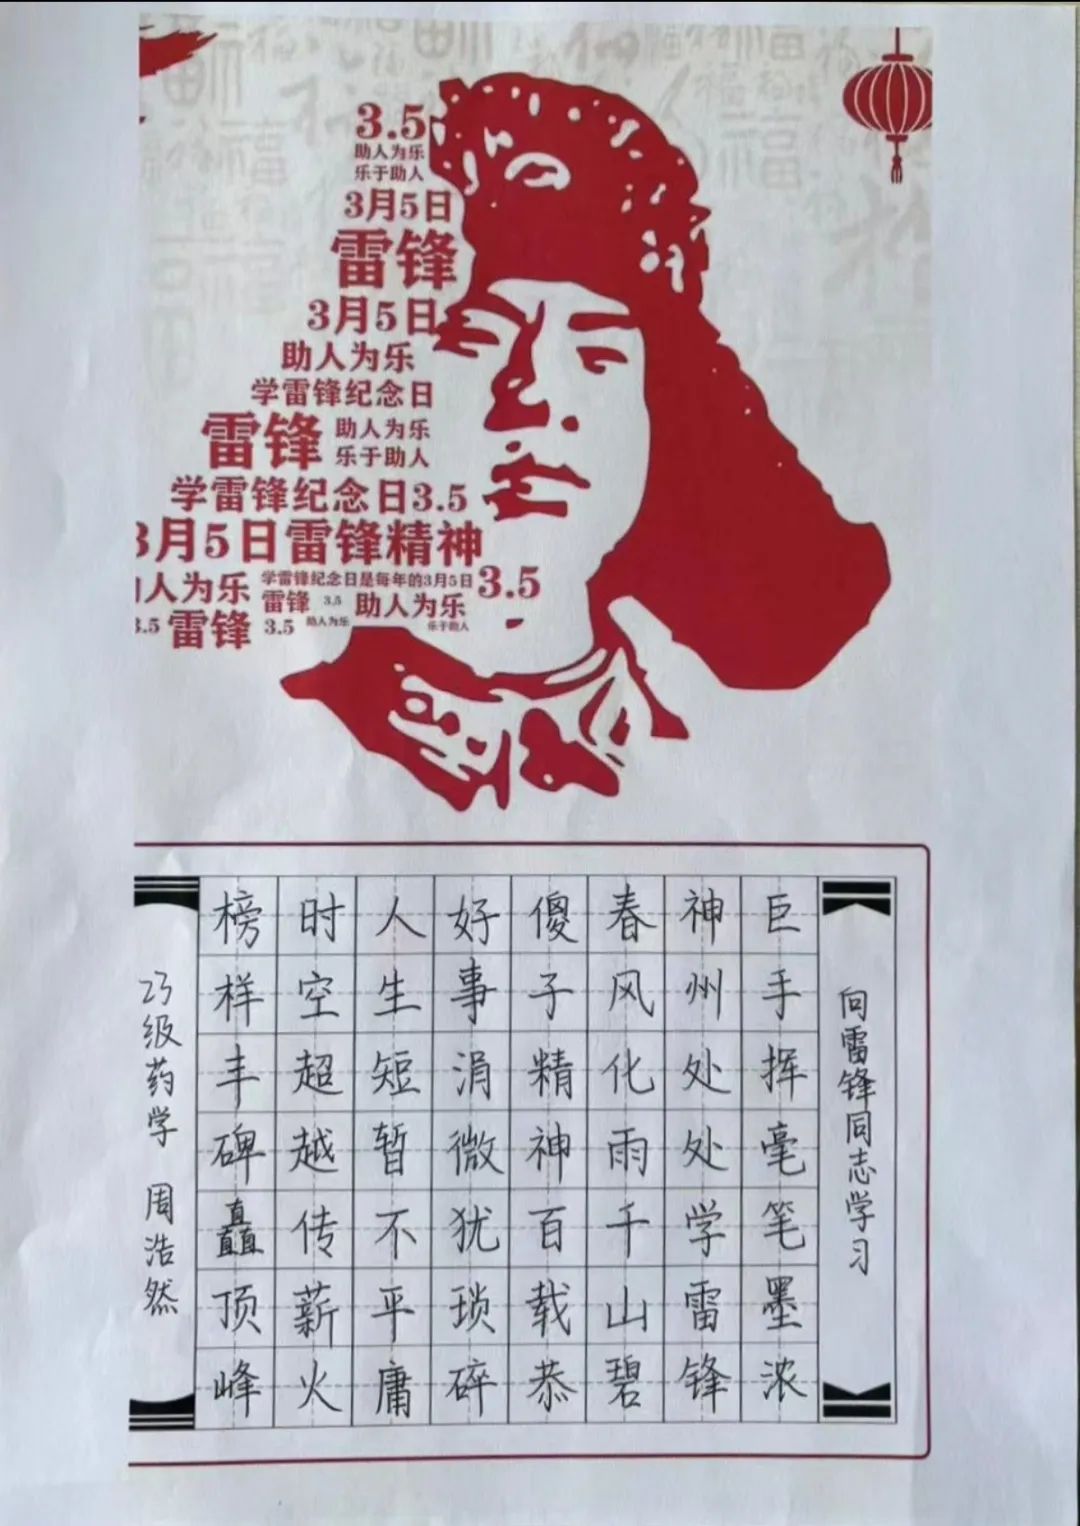 3.5
助人为乐
乐于助人
3月5日
雷锋
3月5日
助人为乐
学雷锋纪念日
雷锋
助人为乐
乐于助人
学雷锋纪念日3.5
3月5日雷锋精神
人为乐
学雷锋纪念日是每年的3月5日
3.5
雷锋
3.5
助人为乐
3.5
雷锋
3.5
助人为乐
乐于助人
向雷锋同志学习
巨手挥毫笔墨浓
神州处处学雷锋
春风化雨千山碧
傻子精神百载恭
好事涓微犹琐碎
人生短暂不平庸
时空超越传薪火
榜样丰碑矗顶峰
23级药学 周浩然